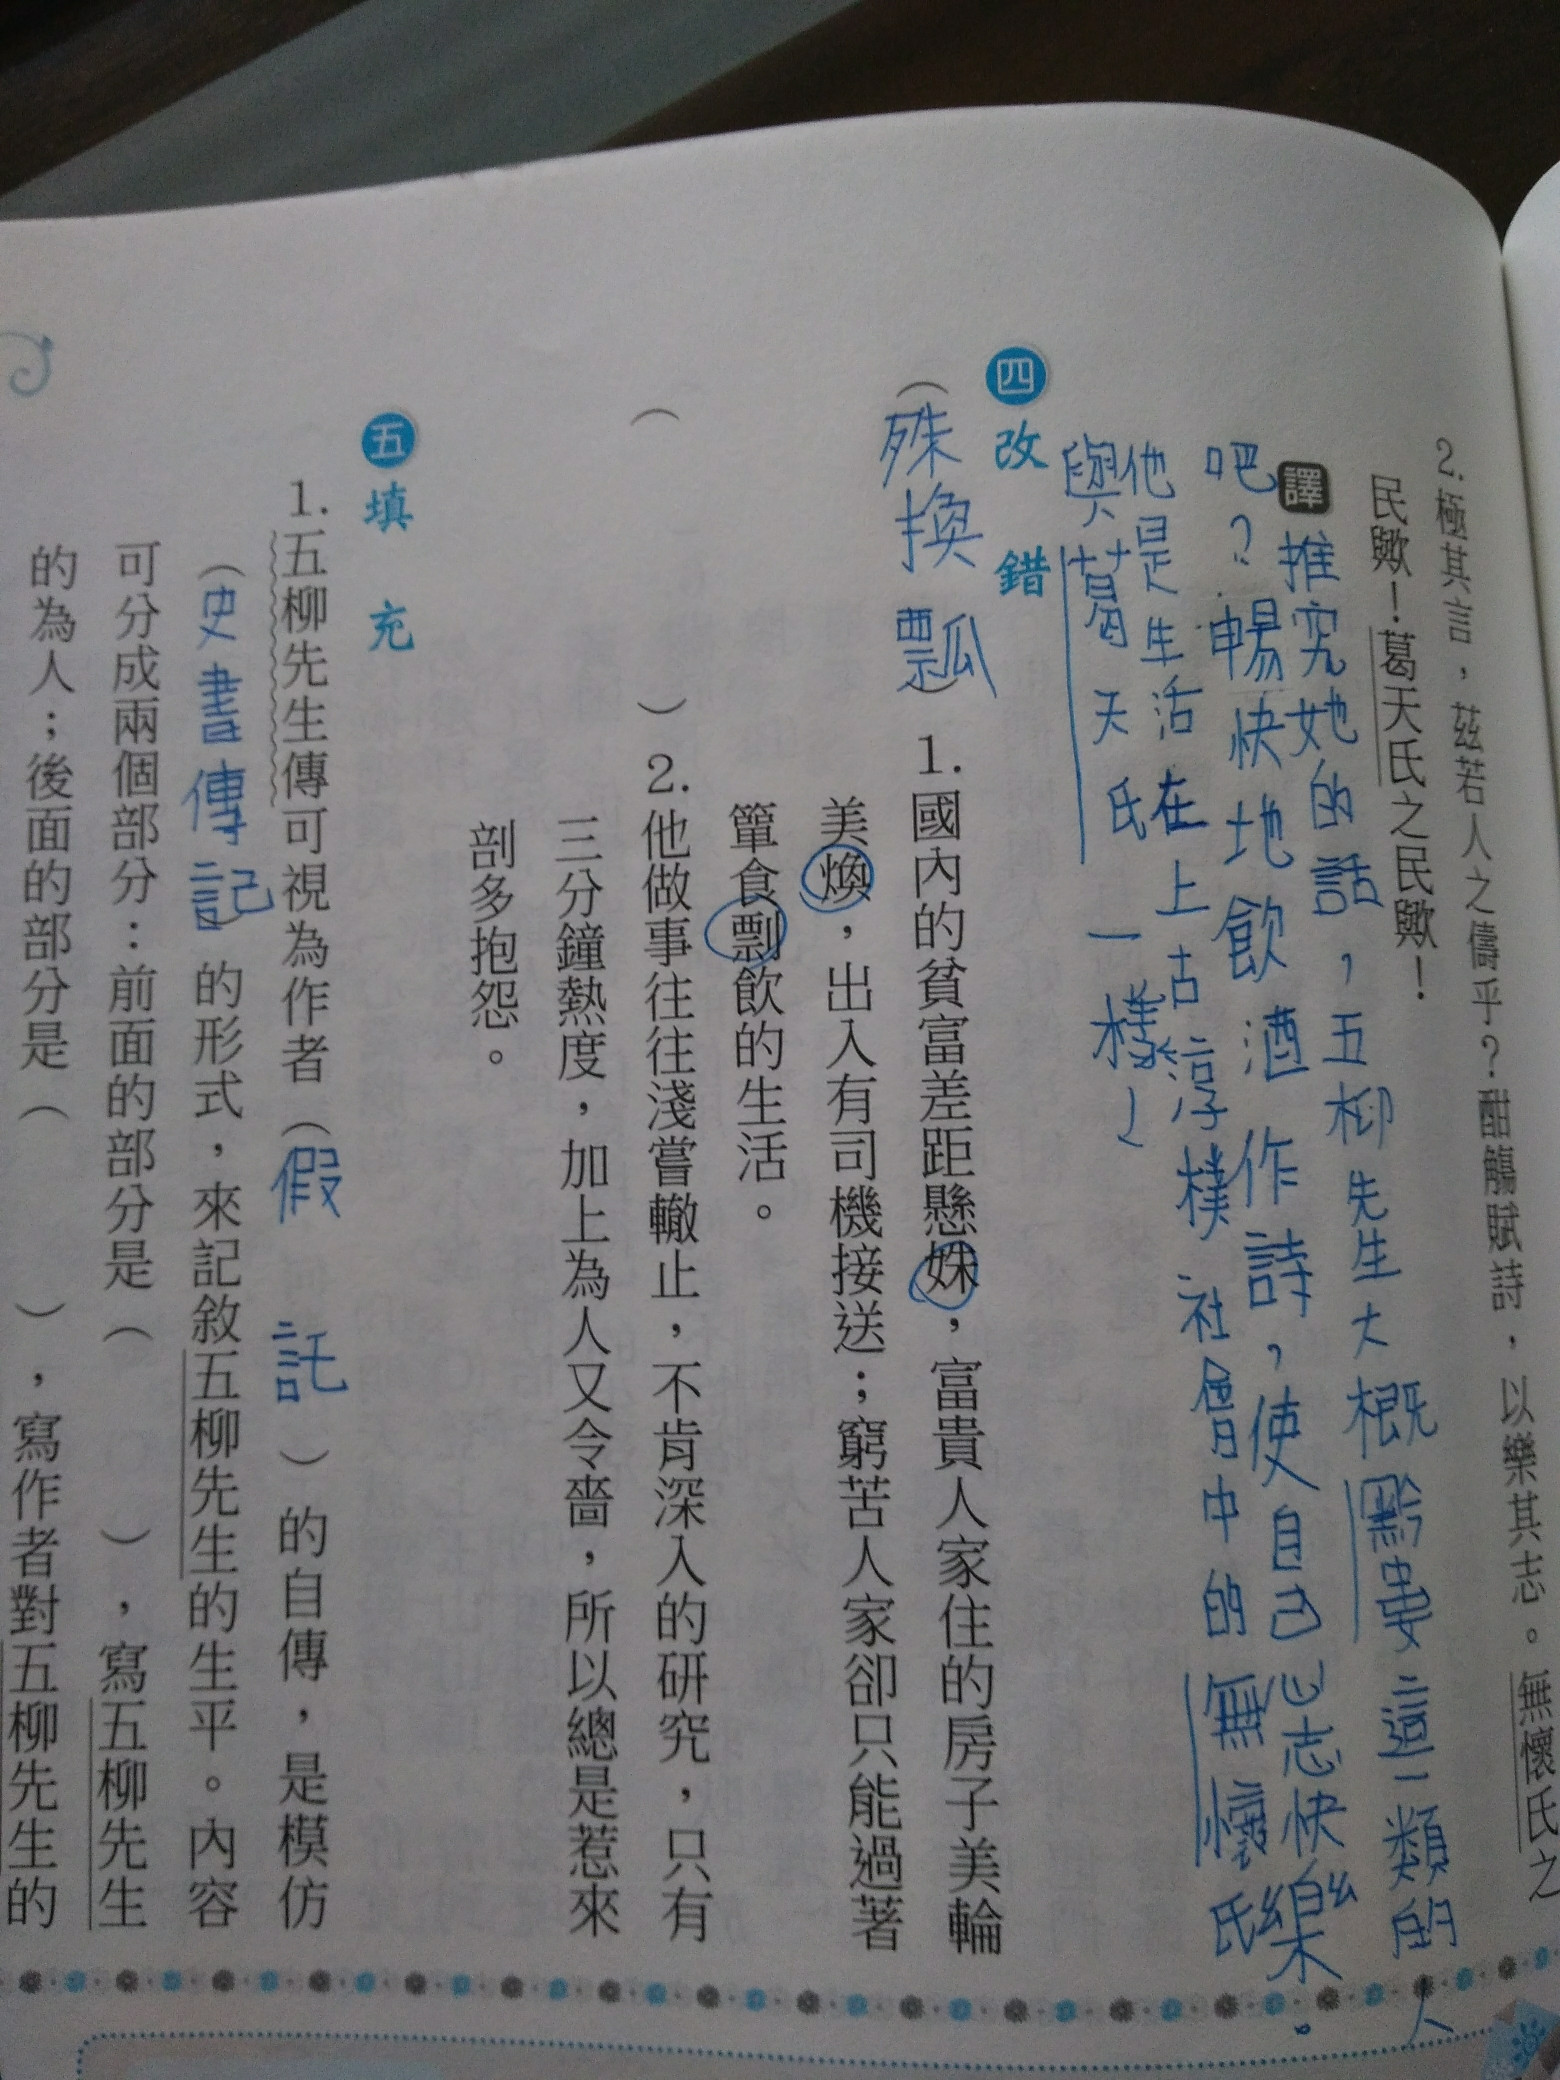 2.極其言，茲若人之儔乎？酣觴賦詩，以樂其志。無懷氏之
民歟！葛天氏之民歟！
譯 推究她的話，五柳先生大概黔婁這一類的人
吧？暢快地飲酒作詩，使自己心志快樂。
他是生活在上古淳樸社會中的無懷氏
與葛天氏一樣
四 改錯
（殊換瓢）1.國內的貧富差距懸妹，富貴人家住的房子美輪
美煥，出入有司機接送；窮苦人家卻只能過著
簞食剽飲的生活。
（ ）2.他做事往往淺嘗轍止，不肯深入的研究，只有
三分鐘熱度，加上為人又令嗇，所以總是惹來
剖多抱怨。
五 填充
1.五柳先生傳可視為作者（假託）的自傳，是模仿
（史書傳記的形式，來記敘五柳先生的生平。內容
可分成兩個部分：前面的部分是（ ），寫五柳先生
的為人；後面的部分是（ ），寫作者對五柳先生的